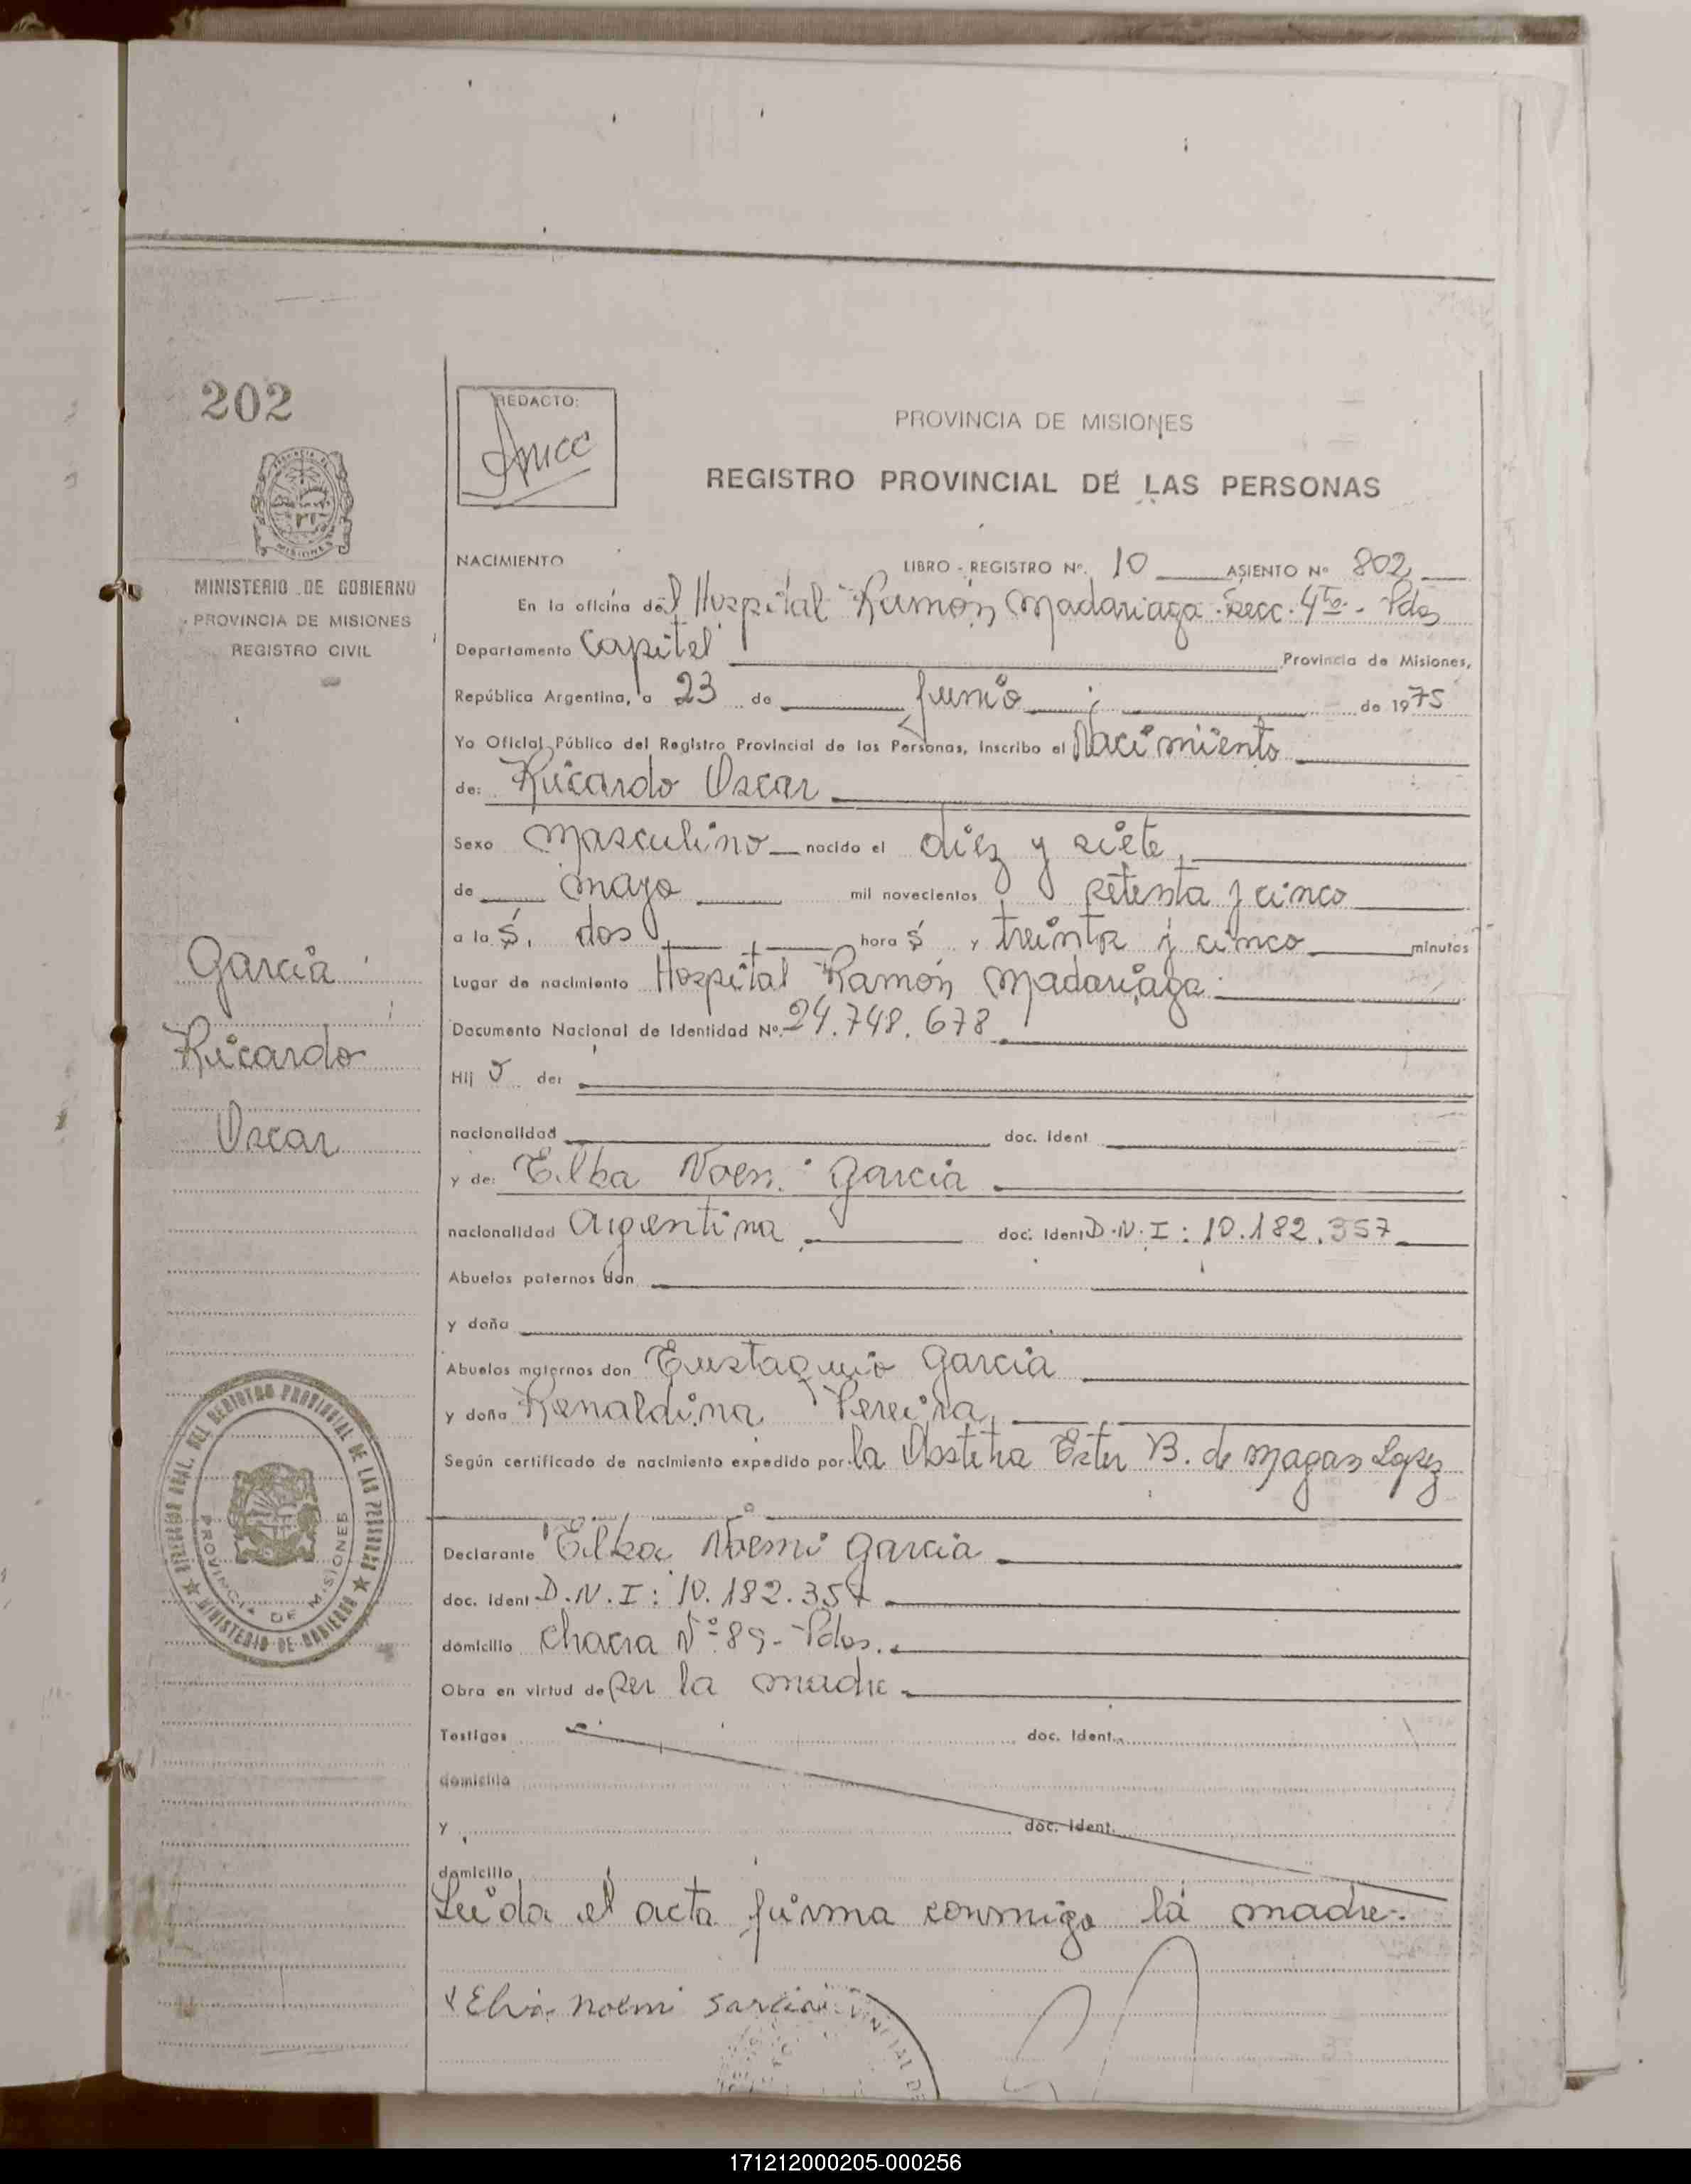 202
MINISTERIO DE GOBIERNO
PROVINCIA DE MISIONES
REGISTRO CIVIL
García
Ricardo
Oscar
DIRECCION GRAL. DEL REGISTRO PROVINCIAL DE LAS PERSONAS
PROVINCIA DE MISIONES
MINISTERIO DE GOBIERNO
REDACTO:
PROVINCIA DE MISIONES
REGISTRO PROVINCIAL DE LAS PERSONAS
NACIMIENTO LIBRO - REGISTRO Nº. 10 ASIENTO Nº 802
En la oficina del Hospital Ramón Madariaga Secc. 4ta - Pdas
Departamento Capital Provincia de Misiones,
República Argentina, a 23 de Junio de 1975
Yo Oficial Público del Registro Provincial de las Personas, inscribo el Nacimiento
de: Ricardo Oscar
Sexo Masculino nacido el diez y siete
de mayo mil novecientos setenta y cinco
a las, dos horas y treinta y cinco minutos
Lugar de nacimiento Hospital Ramón Madariaga
Documento Nacional de Identidad Nº. 24.748.678
Hijo de:
nacionalidad doc. Ident
y de: Elba Noemi García
nacionalidad argentina doc. Ident D.N.I: 10.182.357
Abuelos paternos don
y doña
Abuelos maternos don Eustaquio García
y doña Renaldina Pereira
Según certificado de nacimiento expedido por la Obstetra Ester B. de Magan Lopez
Declarante Elba Noemi García
doc. Ident D.N.I: 10.182.357
domicilio Chacra Nº 89 - Pdas.
Obra en virtud de ser la madre
Testigos doc. Ident.
domicilio
y doc. Ident.
domicilio
Leida el acta firma conmigo la madre.
Elva noemi Garcia
171212000205-000256